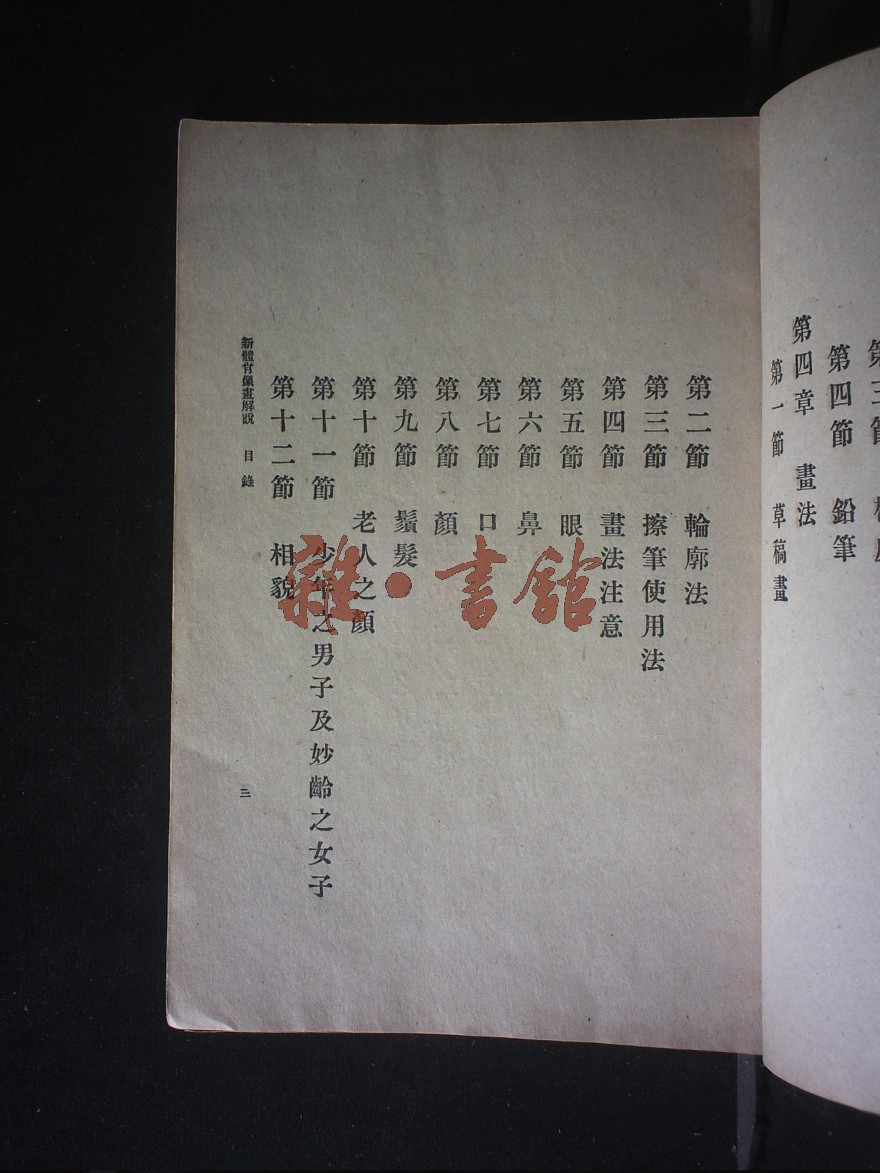 第四節 鉛筆
第四章 畫法
第一節 草稿畫
第二節 輪廓法
第三節 擦筆使用法
第四節 畫法注意
第五節 眼
第六節 鼻
第七節 口
第八節 顏
第九節 鬚髮
第十節 老人之顏
第十一節 少年之男子及妙齡之女子
第十二節 相貌
新體肖像畫解說 目錄
三
雜·書館